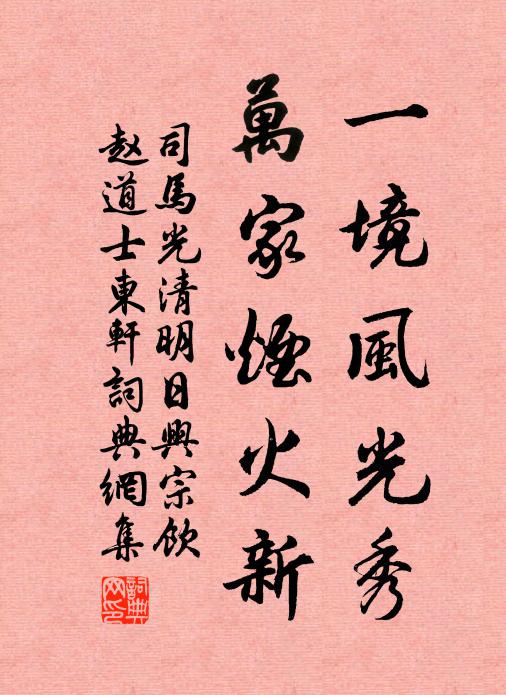 一境風光秀
萬家煙火新
司馬光清明日興宗飲
赵道士東軒詞典網集
詞典
网印